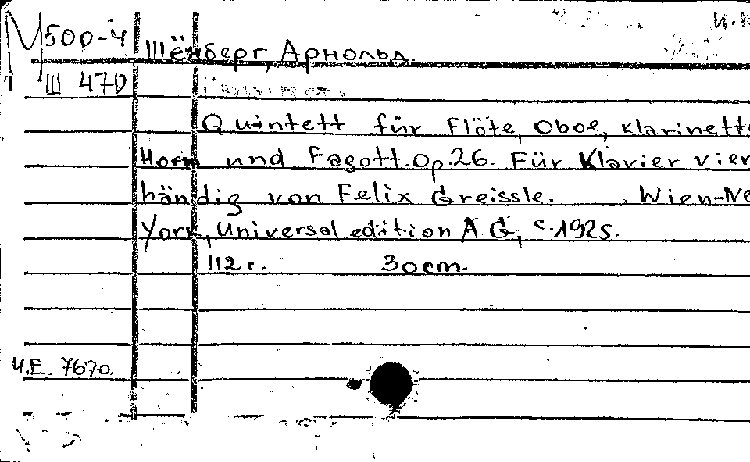 И.Е
М500-4 Шёнберг, Арнольд.
Ш 470
Quintett für Flöte, Oboe, klarinette
Horn und Fagott. Op. 26. Für Klavier vier
händig von Felix Greissle. Wien-Ne
York, Universal edition A G, c. 1925.
112 г. 30 cm.
И.Е. 7670.